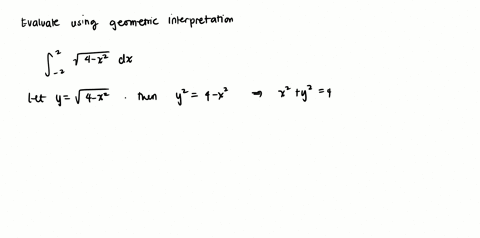 Evaluate using geometric interpretation
∫_{-2}^{2} √(4-x²) dx
Let y = √(4-x²) . Then y² = 4-x² ⇒ x² + y² = 4